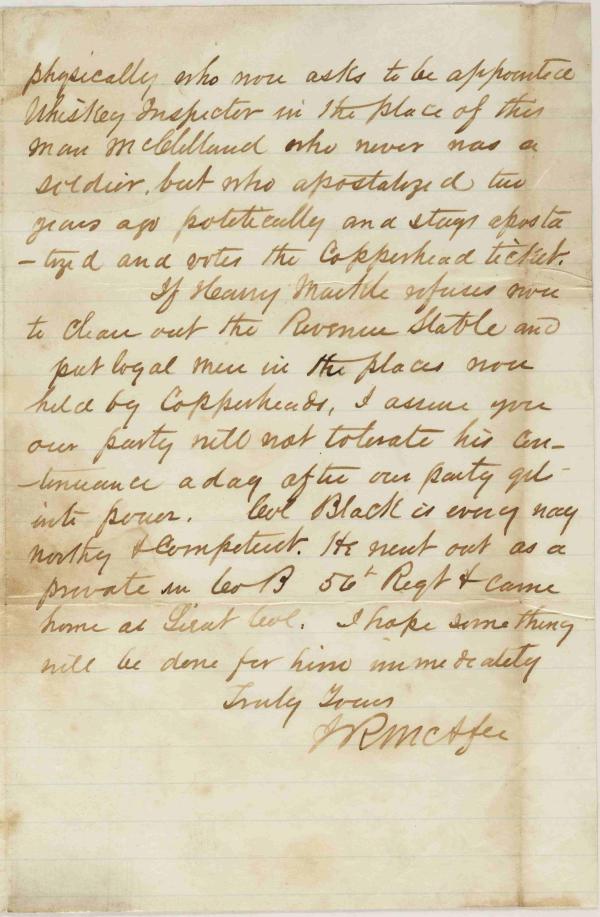 physically who now asks to be appointed
Whiskey Inspector in the place of this
man McClelland who never was a
soldier, but who apostatized two
years ago politically and stays aposta
-tized and votes the Copperhead ticket.
If Harry Markle refuses now
to clean out the Revenue Stable and
put loyal men in the places now
held by Copperheads, I assure you
our party will not tolerate his con-
-tinuance a day after our party get
into power. Col Black is every way
worthy & competent. He went out as a
private in Co B 56t Regt & came
home as Lieut Col. I hope something
will be done for him immediately
Truly Yours
J R McAfee